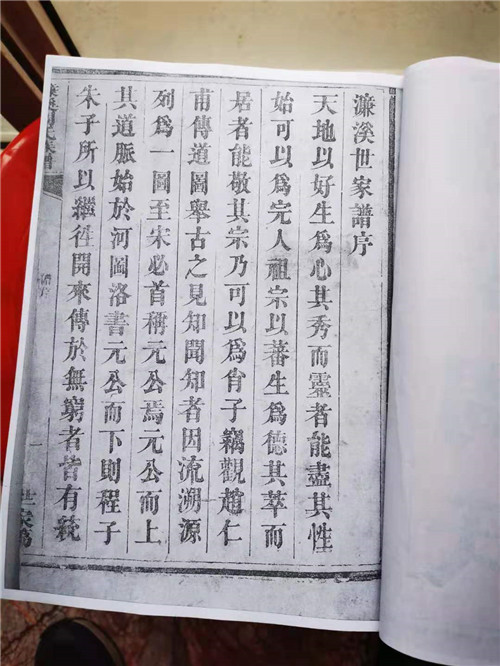 濂溪世家譜序
天地以好生爲心其秀而靈者能盡其性
始可以爲完人祖宗以蕃生爲德其萃而
居者能敬其宗乃可以爲肖子竊觀趙仁
甫傳道圖舉古之見知聞知者因流溯源
列爲一圖至宋必首稱元公焉元公而上
其道脈始於河圖洛書元公而下則程子
朱子所以繼徃開來傳於無窮者皆有統
譜序
一